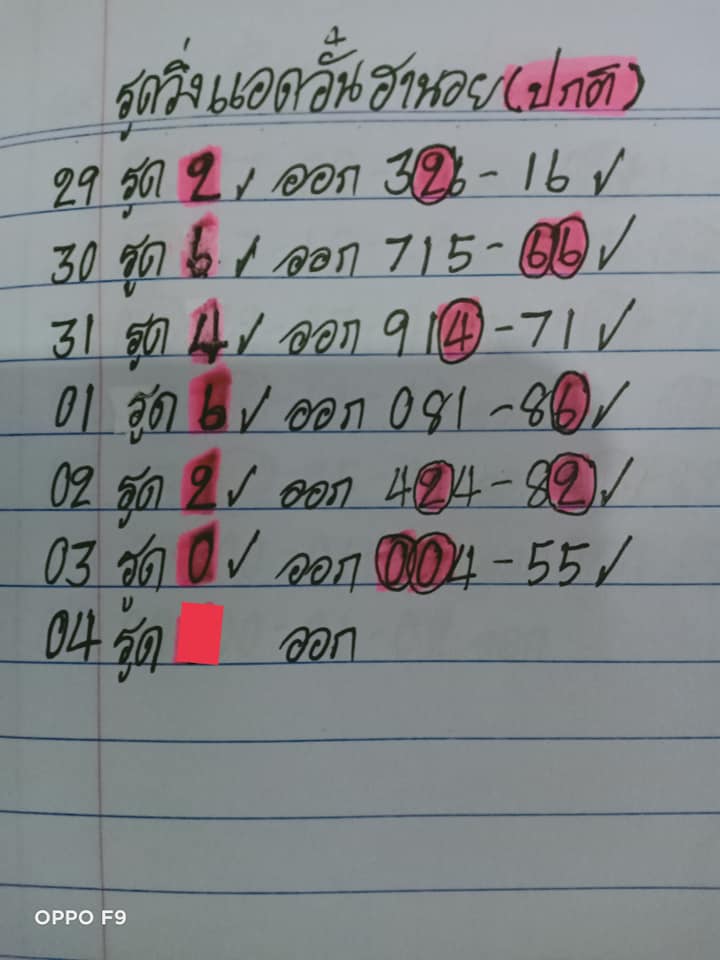 รูดวิ่งแอดอั๋นฮานอย(ปกติ)
29 รูด 2 ✓ ออก 326 - 16 ✓
30 รูด 6 ✓ ออก 715 - 66 ✓
31 รูด 4 ✓ ออก 914 - 71 ✓
01 รูด 6 ✓ ออก 081 - 86 ✓
02 รูด 2 ✓ ออก 424 - 82 ✓
03 รูด 0 ✓ ออก 004 - 55 ✓
04 รูด ออก
OPPO F9